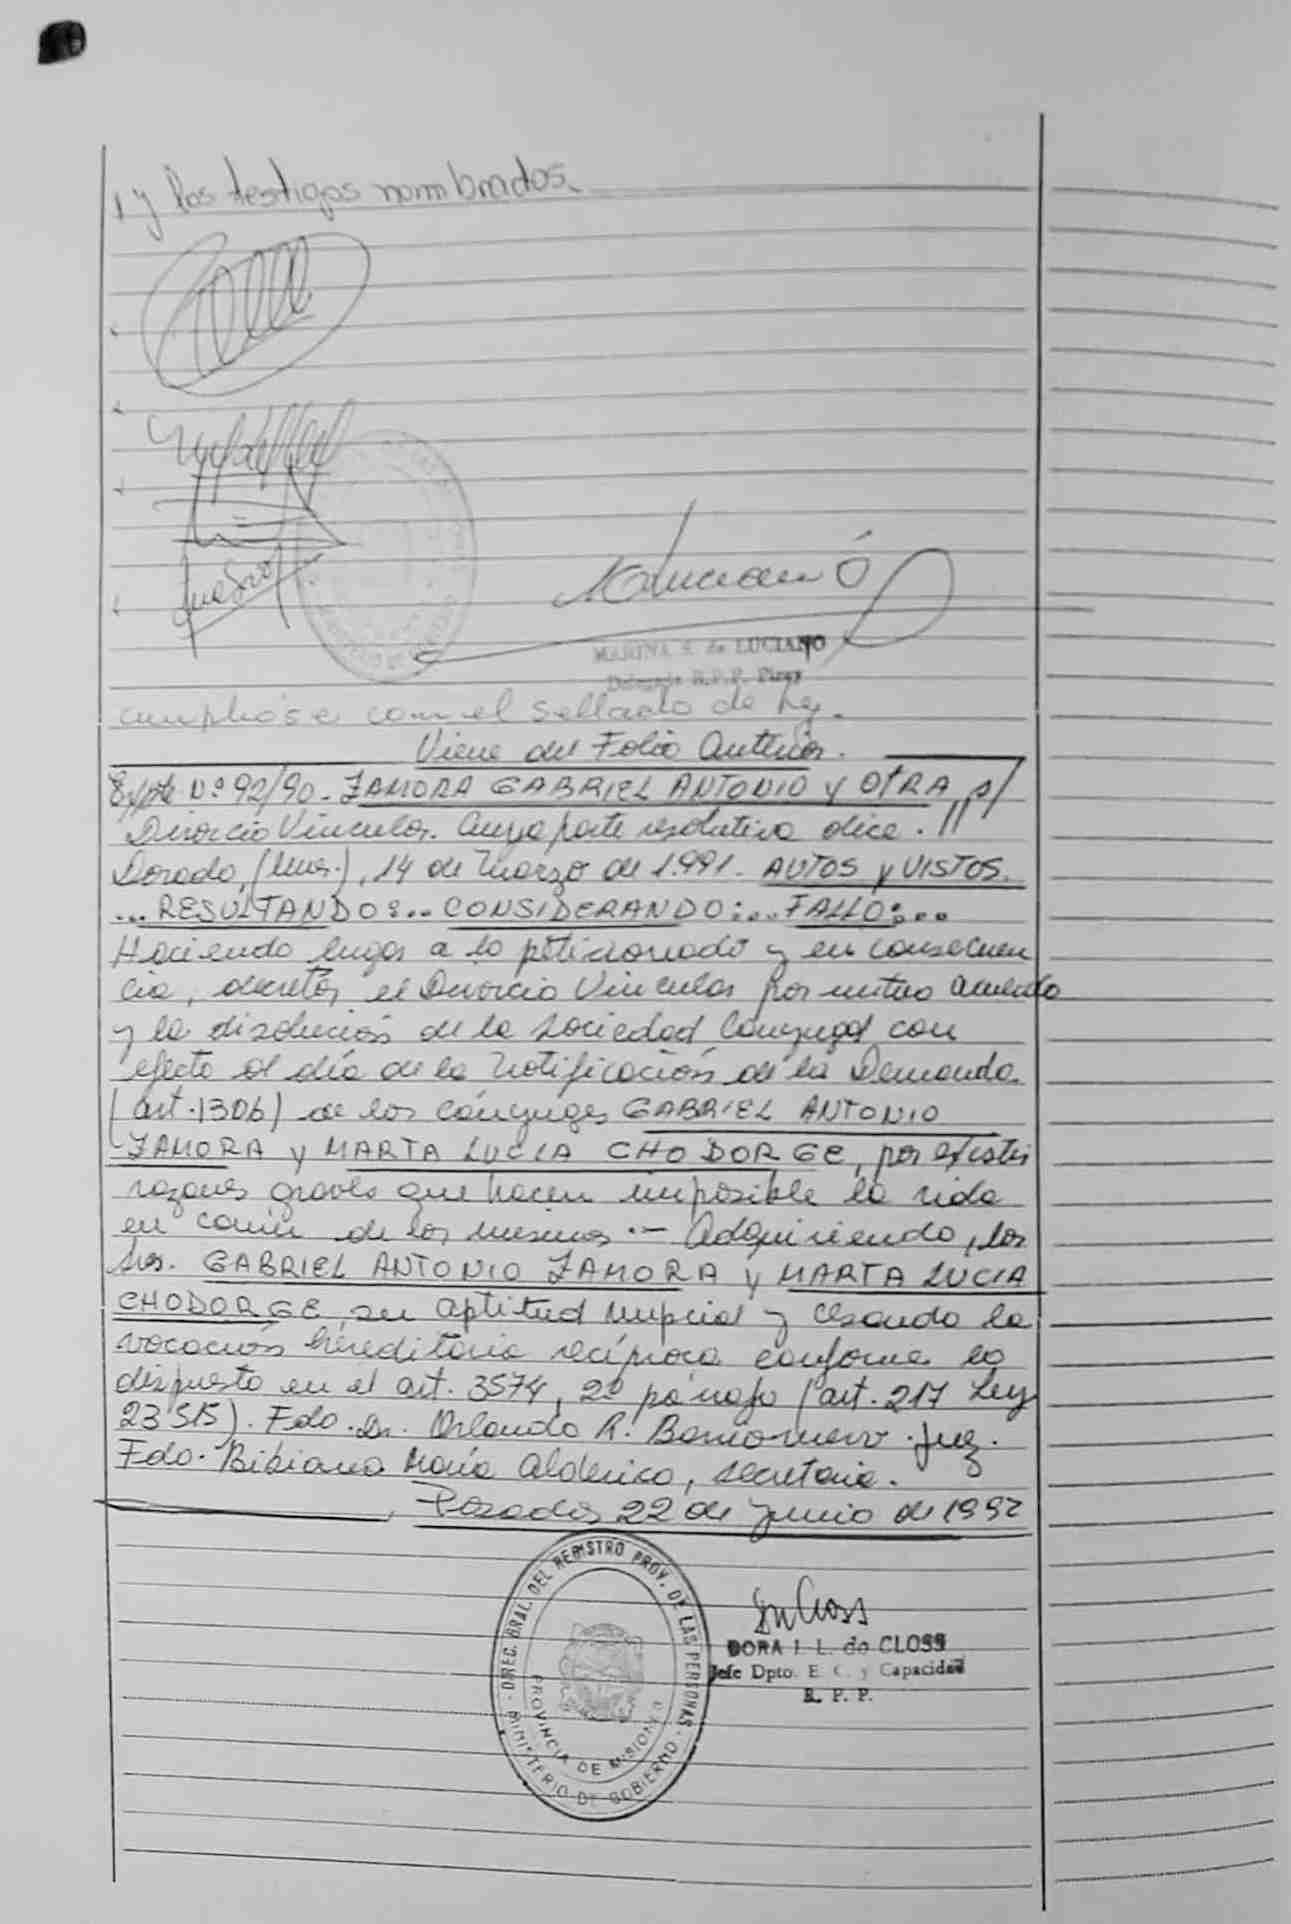 y los testigos nombrados.
MARINA de LUCIANO
Delegada R.P.P.
cumpliose con el sellado de ley.
Viene del Folio Anterior.
Expte Nº 92/90 - ZAMORA GABRIEL ANTONIO y OTRA s/
Divorcio Vincular. Cuya parte resolutiva dice. "
Dorado, (Mnes.), 14 de Marzo de 1.991. AUTOS y VISTOS.
...RESULTANDO:... CONSIDERANDO:... FALLO:...
Haciendo lugar a lo peticionado y en consecuen
cia, decretar el Divorcio Vincular por mutuo acuerdo
y la disolución de la Sociedad Conyugal con
efecto al día de la Notificación de la Demanda.
(art. 1306) de los cónyuges GABRIEL ANTONIO
ZAMORA y MARTA LUCIA CHODORGE, por existir
razones graves que hacen imposible la vida
en común de los mismos .- Adquiriendo, los
Sres. GABRIEL ANTONIO ZAMORA y MARTA LUCIA
CHODORGE, su aptitud nupcial y cesando la
vocación hereditaria recíproca conforme lo
dispuesto en el art. 3574, 2º párrafo (art. 217 Ley
23515). Fdo. Dr. Orlando R. Juez.
Fdo. Bibiana María Alderico, secretaria.
Posadas 22 de Junio de 1992
DIREC. GRAL. DEL REGISTRO PROV. DE LAS PERSONAS
MINISTERIO DE GOBIERNO
PROVINCIA DE MISIONES
DORA I. L. de CLOSS
Jefe Dpto. E. C. y Capacidad
R. P. P.